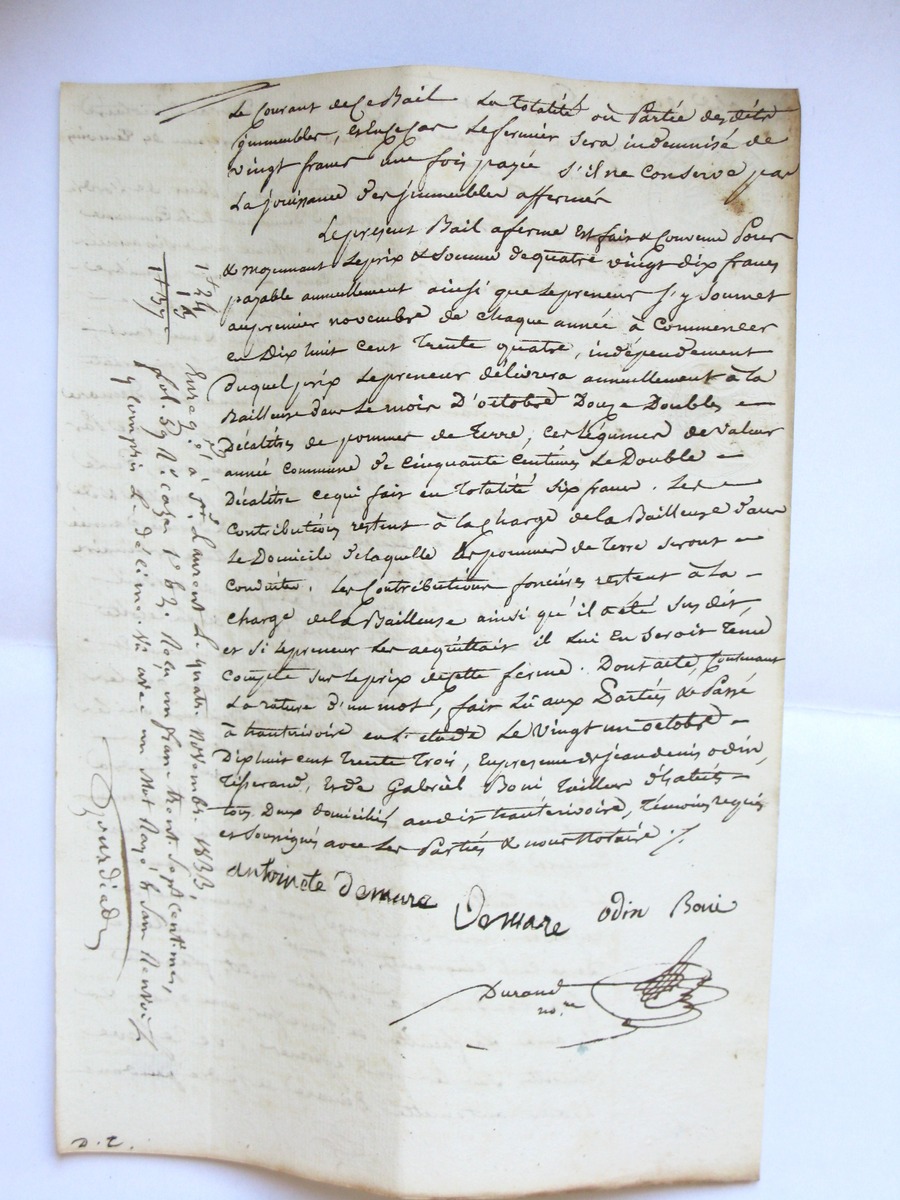 Le Courant de Ce Bail La Totalité ou Partie des dits
jmmeubles, et En ce Cas Le fermier sera indemnisé de
vingt francs une fois payée s'il ne Conserve pas
La jouissance des jmmeubles affermés
Le present Bail a ferme Est fait & Convenu Pour
& moyennant Le prix & Somme de quatre vingt dix francs
payable annuellement ainsi que Le preneur s'y Soumet
au premier novembre de chaque année à Commencer
en Dix huit Cent Trente quatre, indépendament
Duquel prix Le preneur délivrera annuellement à la
Bailleuse dans Le mois D'octobre Douze Doubles =
Décalitres de pommes de Terre, ces légumes de valeur
année Commune de Cinquante Centimes Le Double =
Décalitre ce qui fait en Totalité six francs. Les =
Contributions restent à la Charge de la Bailleuse dans
Le Domicile de laquelle Les pommes de Terre seront =
Conduites. Les Contributions foncières restent à La =
charge de la Bailleuse ainsi qu'il a été sus dit,
et si Le preneur Les acquittait il Lui En seroit Tenu
Compte sur Le prix de cette ferme. Dont acte, Contenant
La rature d'un mot, fait Lû aux Parties & Passé
à hauterivoire en L'étude Le Vingt un octobre =
Dix huit cent Trente Trois, En presence de jean denis odin,
Tisserand, Et de Gabriel Boui Tailleur d'habits =
tous Deux domiciliés au dit hauterivoire, Temoins requis
et soussignés avec Les Parties & nous Notaire ./.
antoinete Demare
Demare odin Boui
Durand
no.re
Enreg.é à S.t Laurent Le quatre Novembre 1833,
fol. 59 R.o cases 1 & 2. Reçu un franc trente sept centimes,
y compris Le décime. Vu avec un Mot Rayé & Sans Renvoi
D. T.